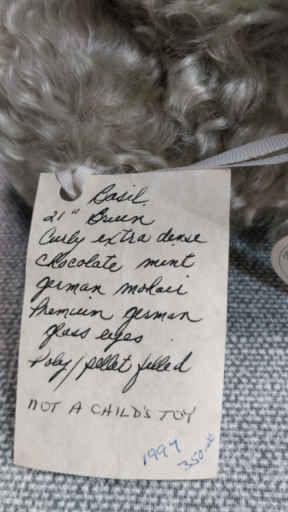 Basil
21" Bruin
Curly extra dense
chocolate mint
german mohair
Premium german
glass eyes
Poly/pellet filled
NOT A CHILD'S TOY
1997
350.00